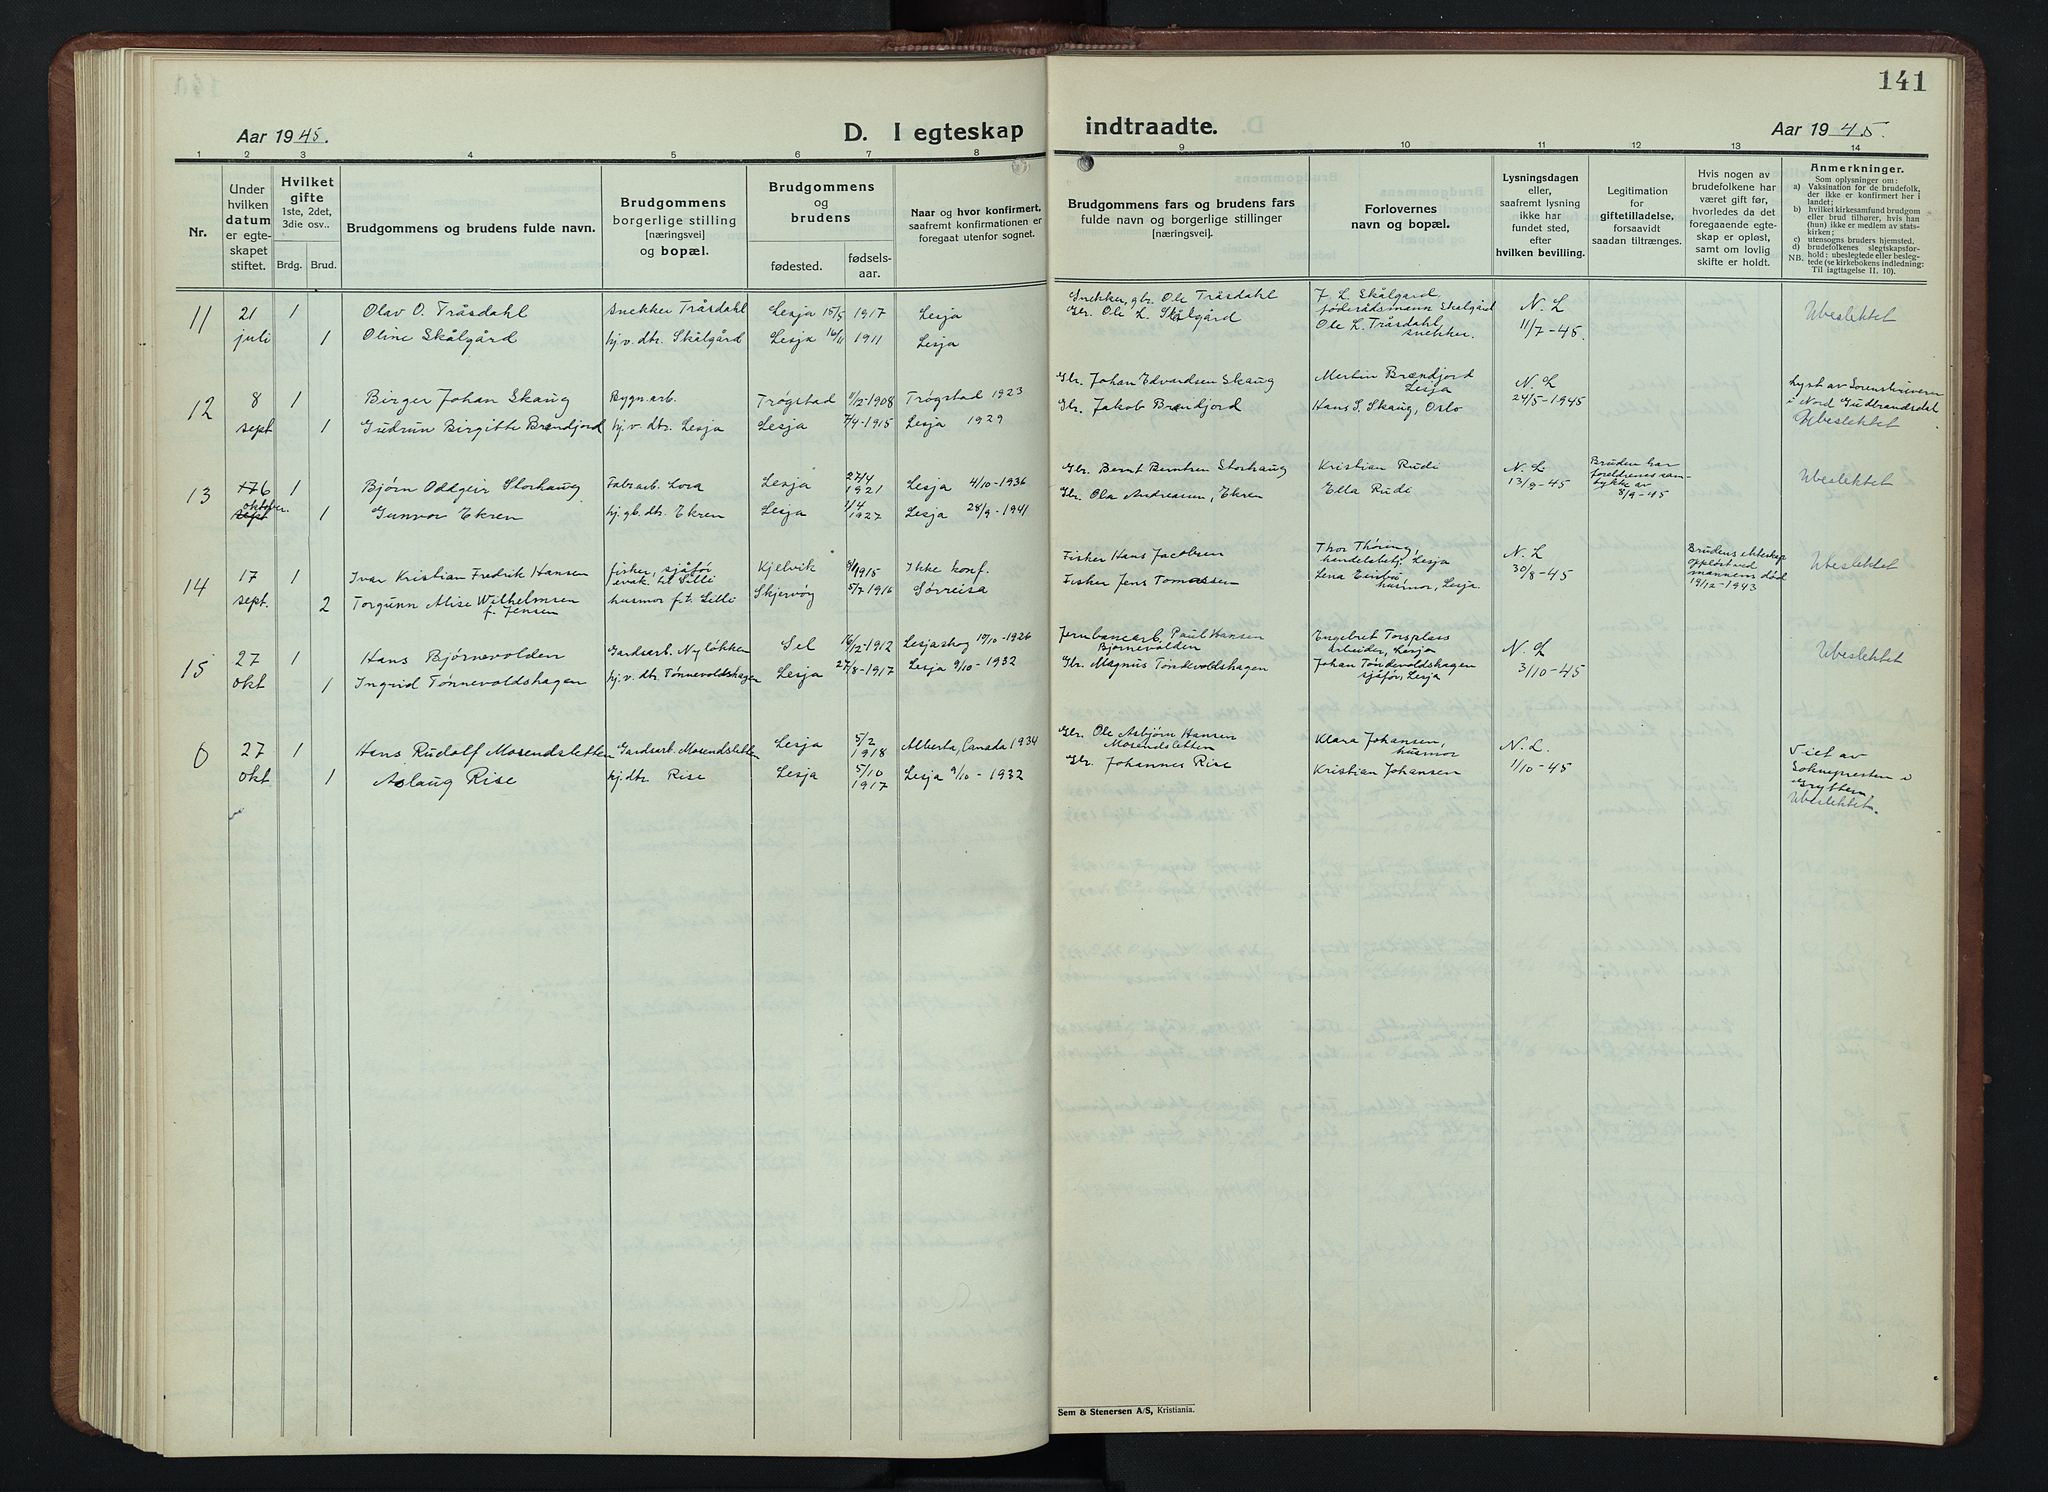 141
Aar 1945.
D. I egteskap indtraadte.
Aar 1945.
1 2 3 4 5 6 7 8 9 10 11 12 13 14
Nr.
Under hvilken datum er egteskapet stiftet.
Hvilket gifte 1ste, 2det, 3die osv..
Brdg. Brud.
Brudgommens og brudens fulde navn.
Brudgommens borgerlige stilling [næringsvei] og bopæl.
Brudgommens og brudens
fødested. fødselsaar.
Naar og hvor konfirmert, saafremt konfirmationen er foregaat utenfor sognet.
Brudgommens fars og brudens fars fulde navn og borgerlige stillinger [næringsvei].
Forlovernes navn og bopæl.
Lysningsdagen eller, saafremt lysning ikke har fundet sted, efter hvilken bevilling.
Legitimation for giftetilladelse, forsaavidt saadan tiltrænges.
Hvis nogen av brudefolkene har været gift før, hvorledes da det foregaaende egteskap er opløst, samt om lovlig skifte er holdt.
Anmerkninger.
Som oplysninger om:
a) Vaksination for de brudefolk, der ikke er konfirmert her i landet;
b) hvilket kirkesamfund brudgom eller brud tilhører, hvis han (hun) ikke er medlem av statskirken;
c) utensogns bruders hjemsted.
d) brudefolkenes slegtskapsforhold: ubeslegtede eller beslegtede (se kirkebokens indledning: Til iagttagelse II. 10).
NB.
11 21 1 Olav O. Tråsdahl snekker Tråsdahl Lesja 15/5 1917 Lesja Snekker, gbr. Ole Tråsdahl J. L. Skålgard, føderådsmann Skålgård N. L Ubeslektet
juli 1 Oline Skålgård hj.v. dtr. Skålgård Lesja 16/11 1911 Lesja Gbr. Ole L. Skålgård Ole L. Tråsdahl, snekker. 11/7-45.
12 8 1 Birger Johan Skaug Bygn.arb. Trøgstad 9/12-1908 Trøgstad 1923 Gbr. Johan Edvardsen Skaug Mertin Brændjord Lesja N. L lyst av Sorenskriveren i Nord Gudbrandsdal
sept 1 Gudrun Birgitte Brændjord hj.v. dtr. Lesja Lesja 7/4-1915 Lesja 1929 Gbr. Jakob Brændjord Hans S. Skaug, Oslo 24/5-1945 Ubeslektet
13 6 1 Bjørn Oddgeir Storhaug Fabr.arb. Lora Lesja 27/4 1921 Lesja 4/10-1936 Gbr. Bernt Berntsen Storhaug Kristian Rudi N. L. Bruden har foreldrenes samtykke av 8/9-45 Ubeslektet
oktober. sept 1 Gunvor Ekren hj. gb. dtr. Ekren Lesja 1/4 1927 Lesja 28/9-1941 Gbr. Ola Andreassen, Ekren Ella Rudi 13/9-45
14 17 1 Ivar Kristian Fredrik Hansen fisker, sjåfør evak. til Lilli Kjelvik 1915 Ikke konf. Fisker Hans Jacobsen Thor Thøring, handelsbetj. Lesja N. L Brudens ekteskap oppløst ved mannens død 19/12-1943 Ubeslektet
sept. 2 Torgunn Alise Wilhelmsen f. Jensen husmor f.t. Lilli Skjervøy 5/7 1916 Sørreisa Fisker Jens Tomassen Lena Einbu husmor, Lesja. 30/8-45
15 27 1 Hans Bjørnevolden Gardsarb. Nyløkken Sel 16/12-1912 Lesjaskog 10/10-1926 Jernbanearb. Paul Hansen Bjørnevolden Engebret Torsplass arbeider, Lesja N. L Ubeslektet
okt 1 Ingrid Tønnevoldshagen hj.v. dtr. Tønnevoldshagen Lesja 27/8-1917 Lesja 9/10-1932 Gbr. Magnus Tøndevoldshagen Johan Tøndevoldshagen sjåfør, Lesja 3/10-45
0 27 1 Hans Rudolf Mosendsletten Gardsarb. Mosendsletten Lesja 5/2 1918 Alberta, Canada 1934 Gbr. Ole Asbjørn Hansen Mosendsletten Klara Johansen, husmor N. L. Viet av Soknepresten i Grytten.
okt. 1 Aslaug Rise hj.dtr. Rise Lesja 5/10 1917 Lesja 9/10-1932 Gbr. Johannes Rise Kristian Johansen 1/10-45 Ubeslektet.
Sem & Stenersen A/S, Kristiania.